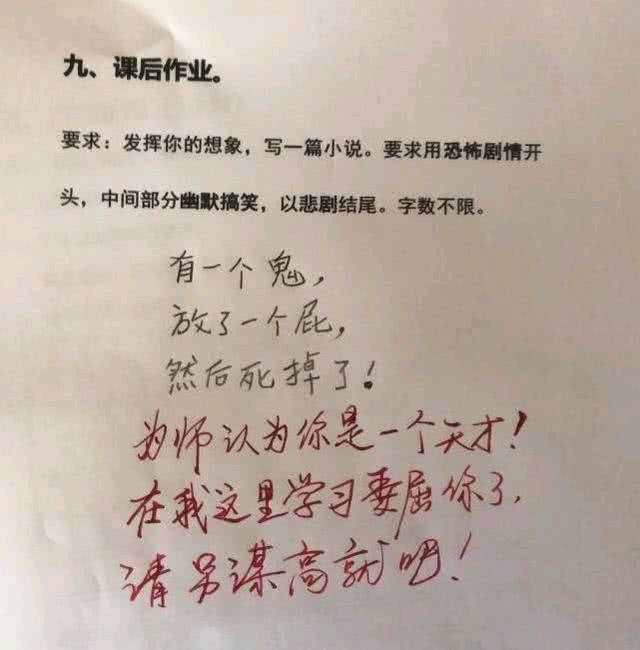 九、课后作业。
要求：发挥你的想象，写一篇小说。要求用恐怖剧情开
头，中间部分幽默搞笑，以悲剧结尾。字数不限。
有一个鬼，
放了一个屁，
然后死掉了！
为师认为你是一个天才！
在我这里学习委屈你了，
请另谋高就吧！